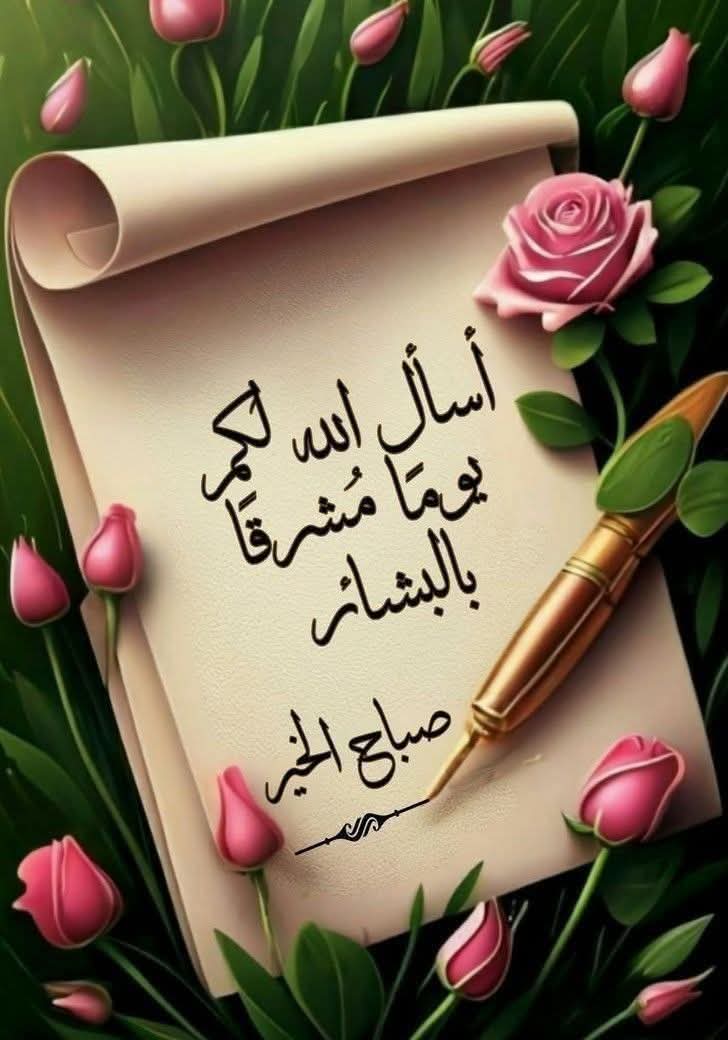 أسأل الله لكم
يومَا مُشرقَا
بالبشائر
صباح الخير